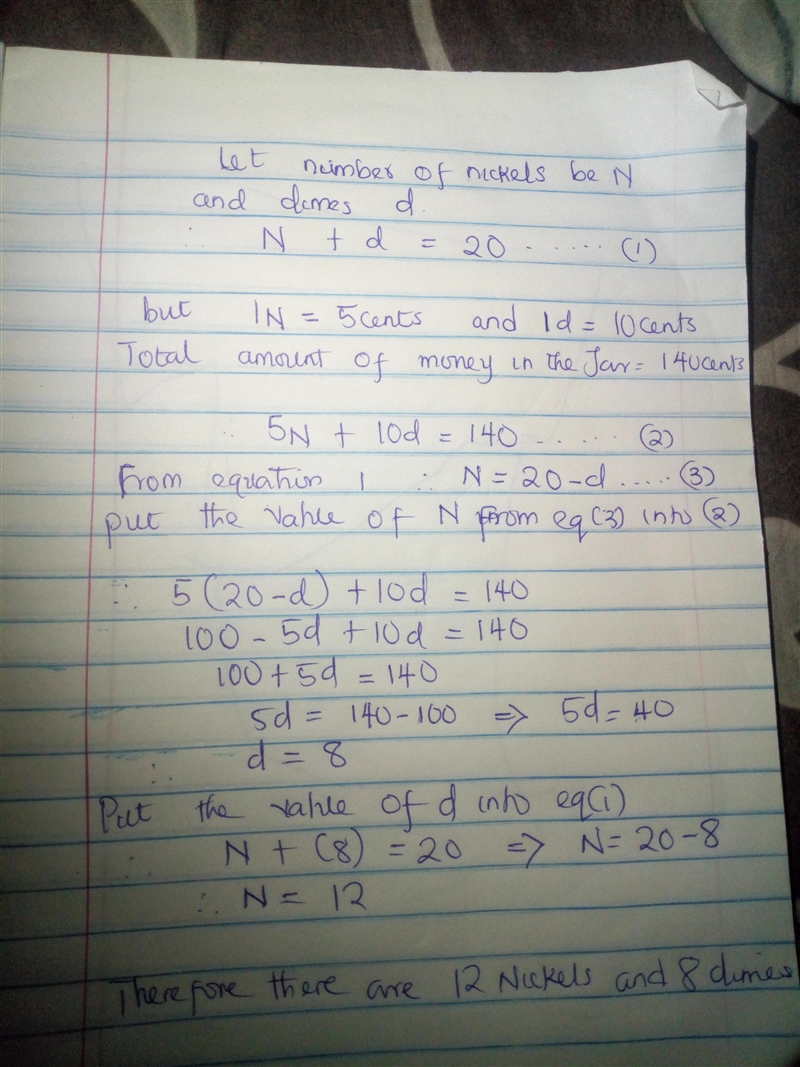 Let number of nickels be N
and dimes d.
∴ N + d = 20 ...... (1)
but 1N = 5cents and 1d = 10cents
Total amount of money in the Jar = 140cents
∴ 5N + 10d = 140 ...... (2)
From equation 1 ∴ N = 20-d ..... (3)
put the value of N from eq(3) into (2)
∴ 5(20-d) + 10d = 140
100 - 5d + 10d = 140
100 + 5d = 140
5d = 140-100 ⇒ 5d = 40
∴ d = 8
Put the value of d into eq(1)
N + (8) = 20 ⇒ N = 20-8
∴ N = 12
Therefore there are 12 Nickels and 8 dimes